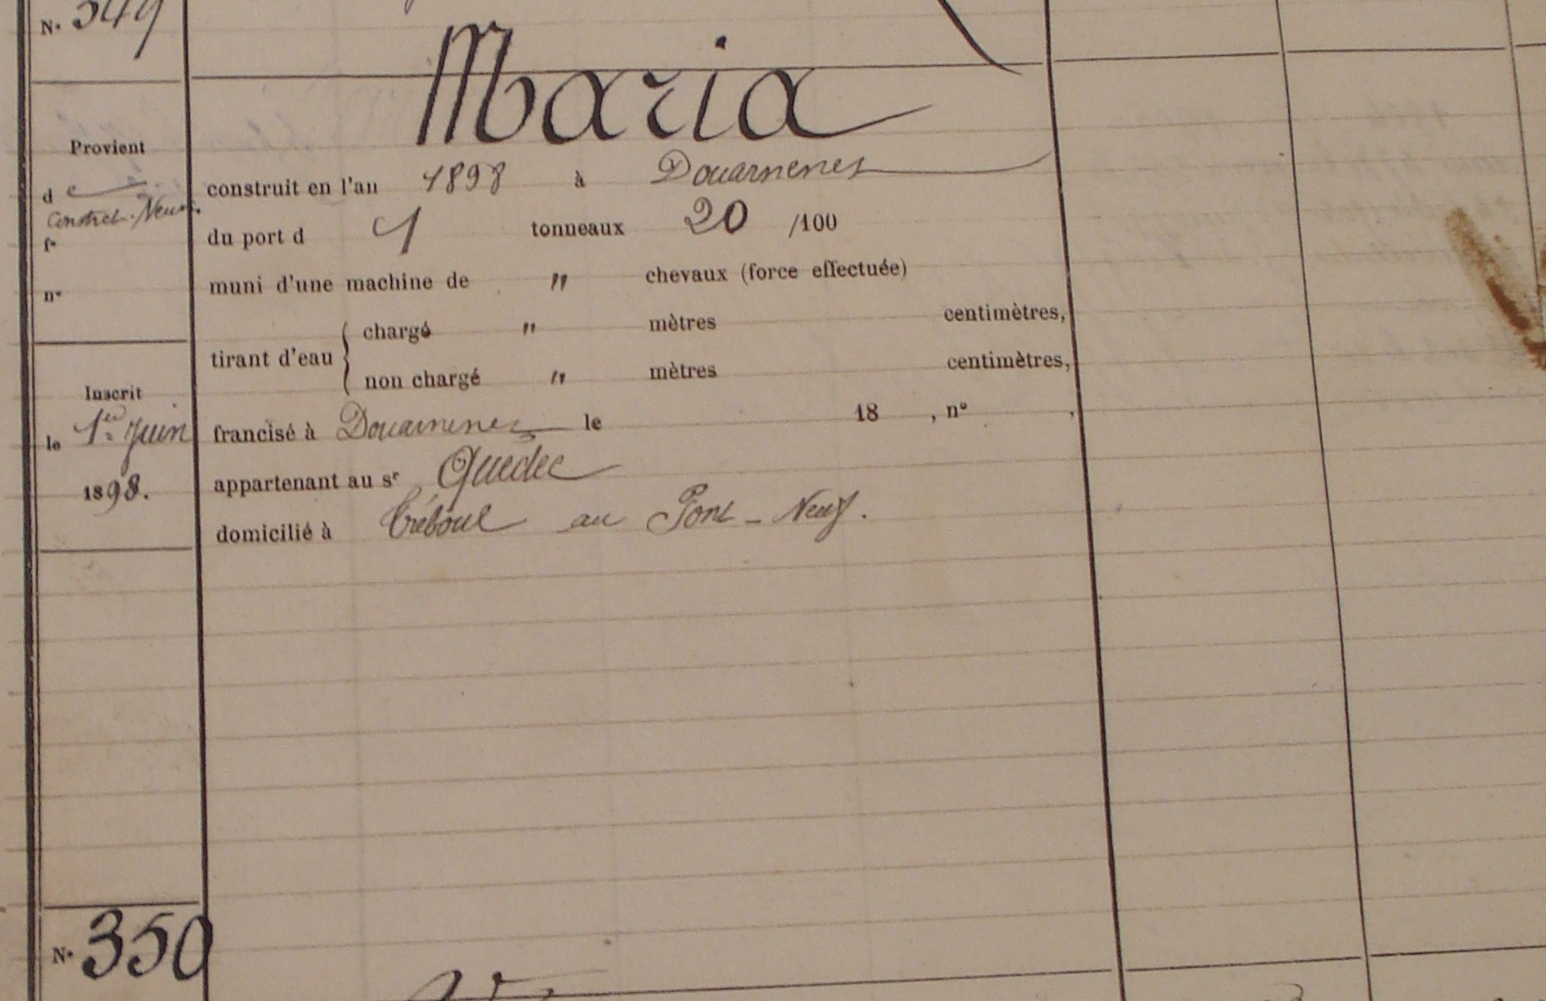 N° 349
Maria
Provient
de
Construct. Neuve
f°
n°
construit en l'an 1898 à Douarnenez
du port d 1 tonneaux 20 /100
muni d'une machine de " chevaux (force effectuée)
tirant d'eau { chargé " mètres centimètres,
non chargé " mètres centimètres,
Inscrit
le 1er Juin
1898.
francisé à Douarnenez le 18 , n° ,
appartenant au sr Quédec
domicilié à Tréboul au Pont-Neuf.
N° 350